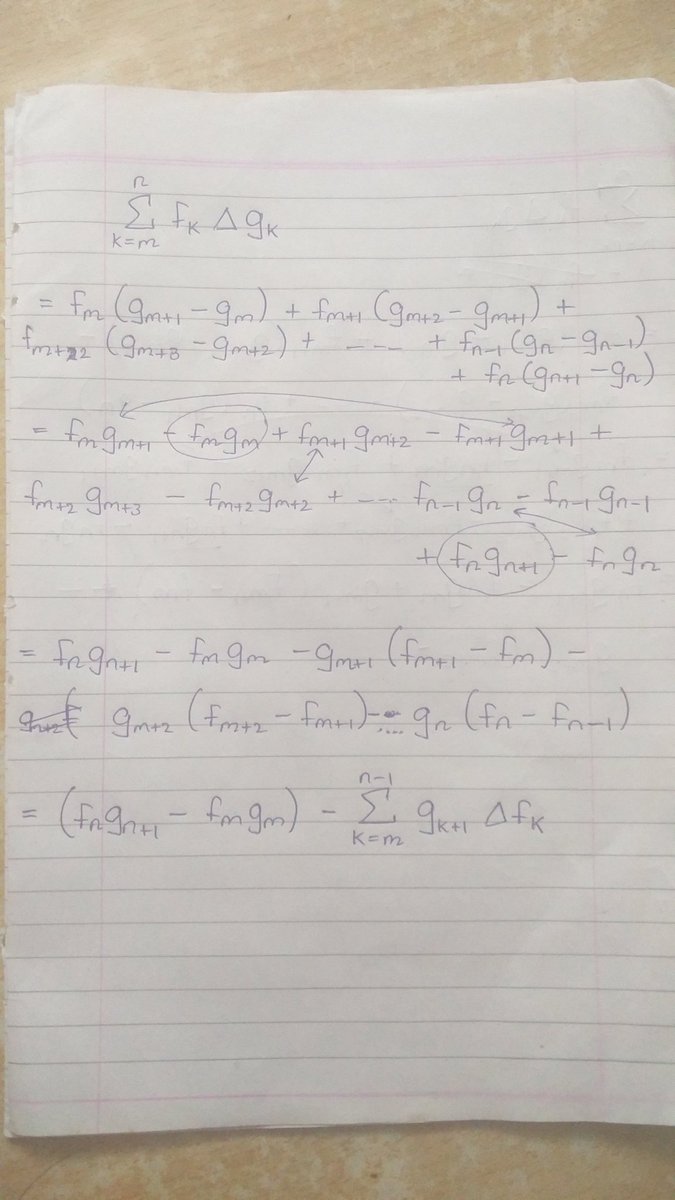 n
Σ f_k Δ g_k
k=m
= f_m (g_{m+1} - g_m) + f_{m+1} (g_{m+2} - g_{m+1}) +
f_{m+2} (g_{m+3} - g_{m+2}) + ---- + f_{n-1} (g_n - g_{n-1})
+ f_n (g_{n+1} - g_n)
= f_m g_{m+1} - f_m g_m + f_{m+1} g_{m+2} - f_{m+1} g_{m+1} +
f_{m+2} g_{m+3} - f_{m+2} g_{m+2} + ---- f_{n-1} g_n - f_{n-1} g_{n-1}
+ f_n g_{n+1} - f_n g_n
= f_n g_{n+1} - f_m g_m - g_{m+1} (f_{m+1} - f_m) -
g_{m+2} (f_{m+2} - f_{m+1}) - .... g_n (f_n - f_{n-1})
n-1
= (f_n g_{n+1} - f_m g_m) - Σ g_{k+1} Δ f_k
k=m